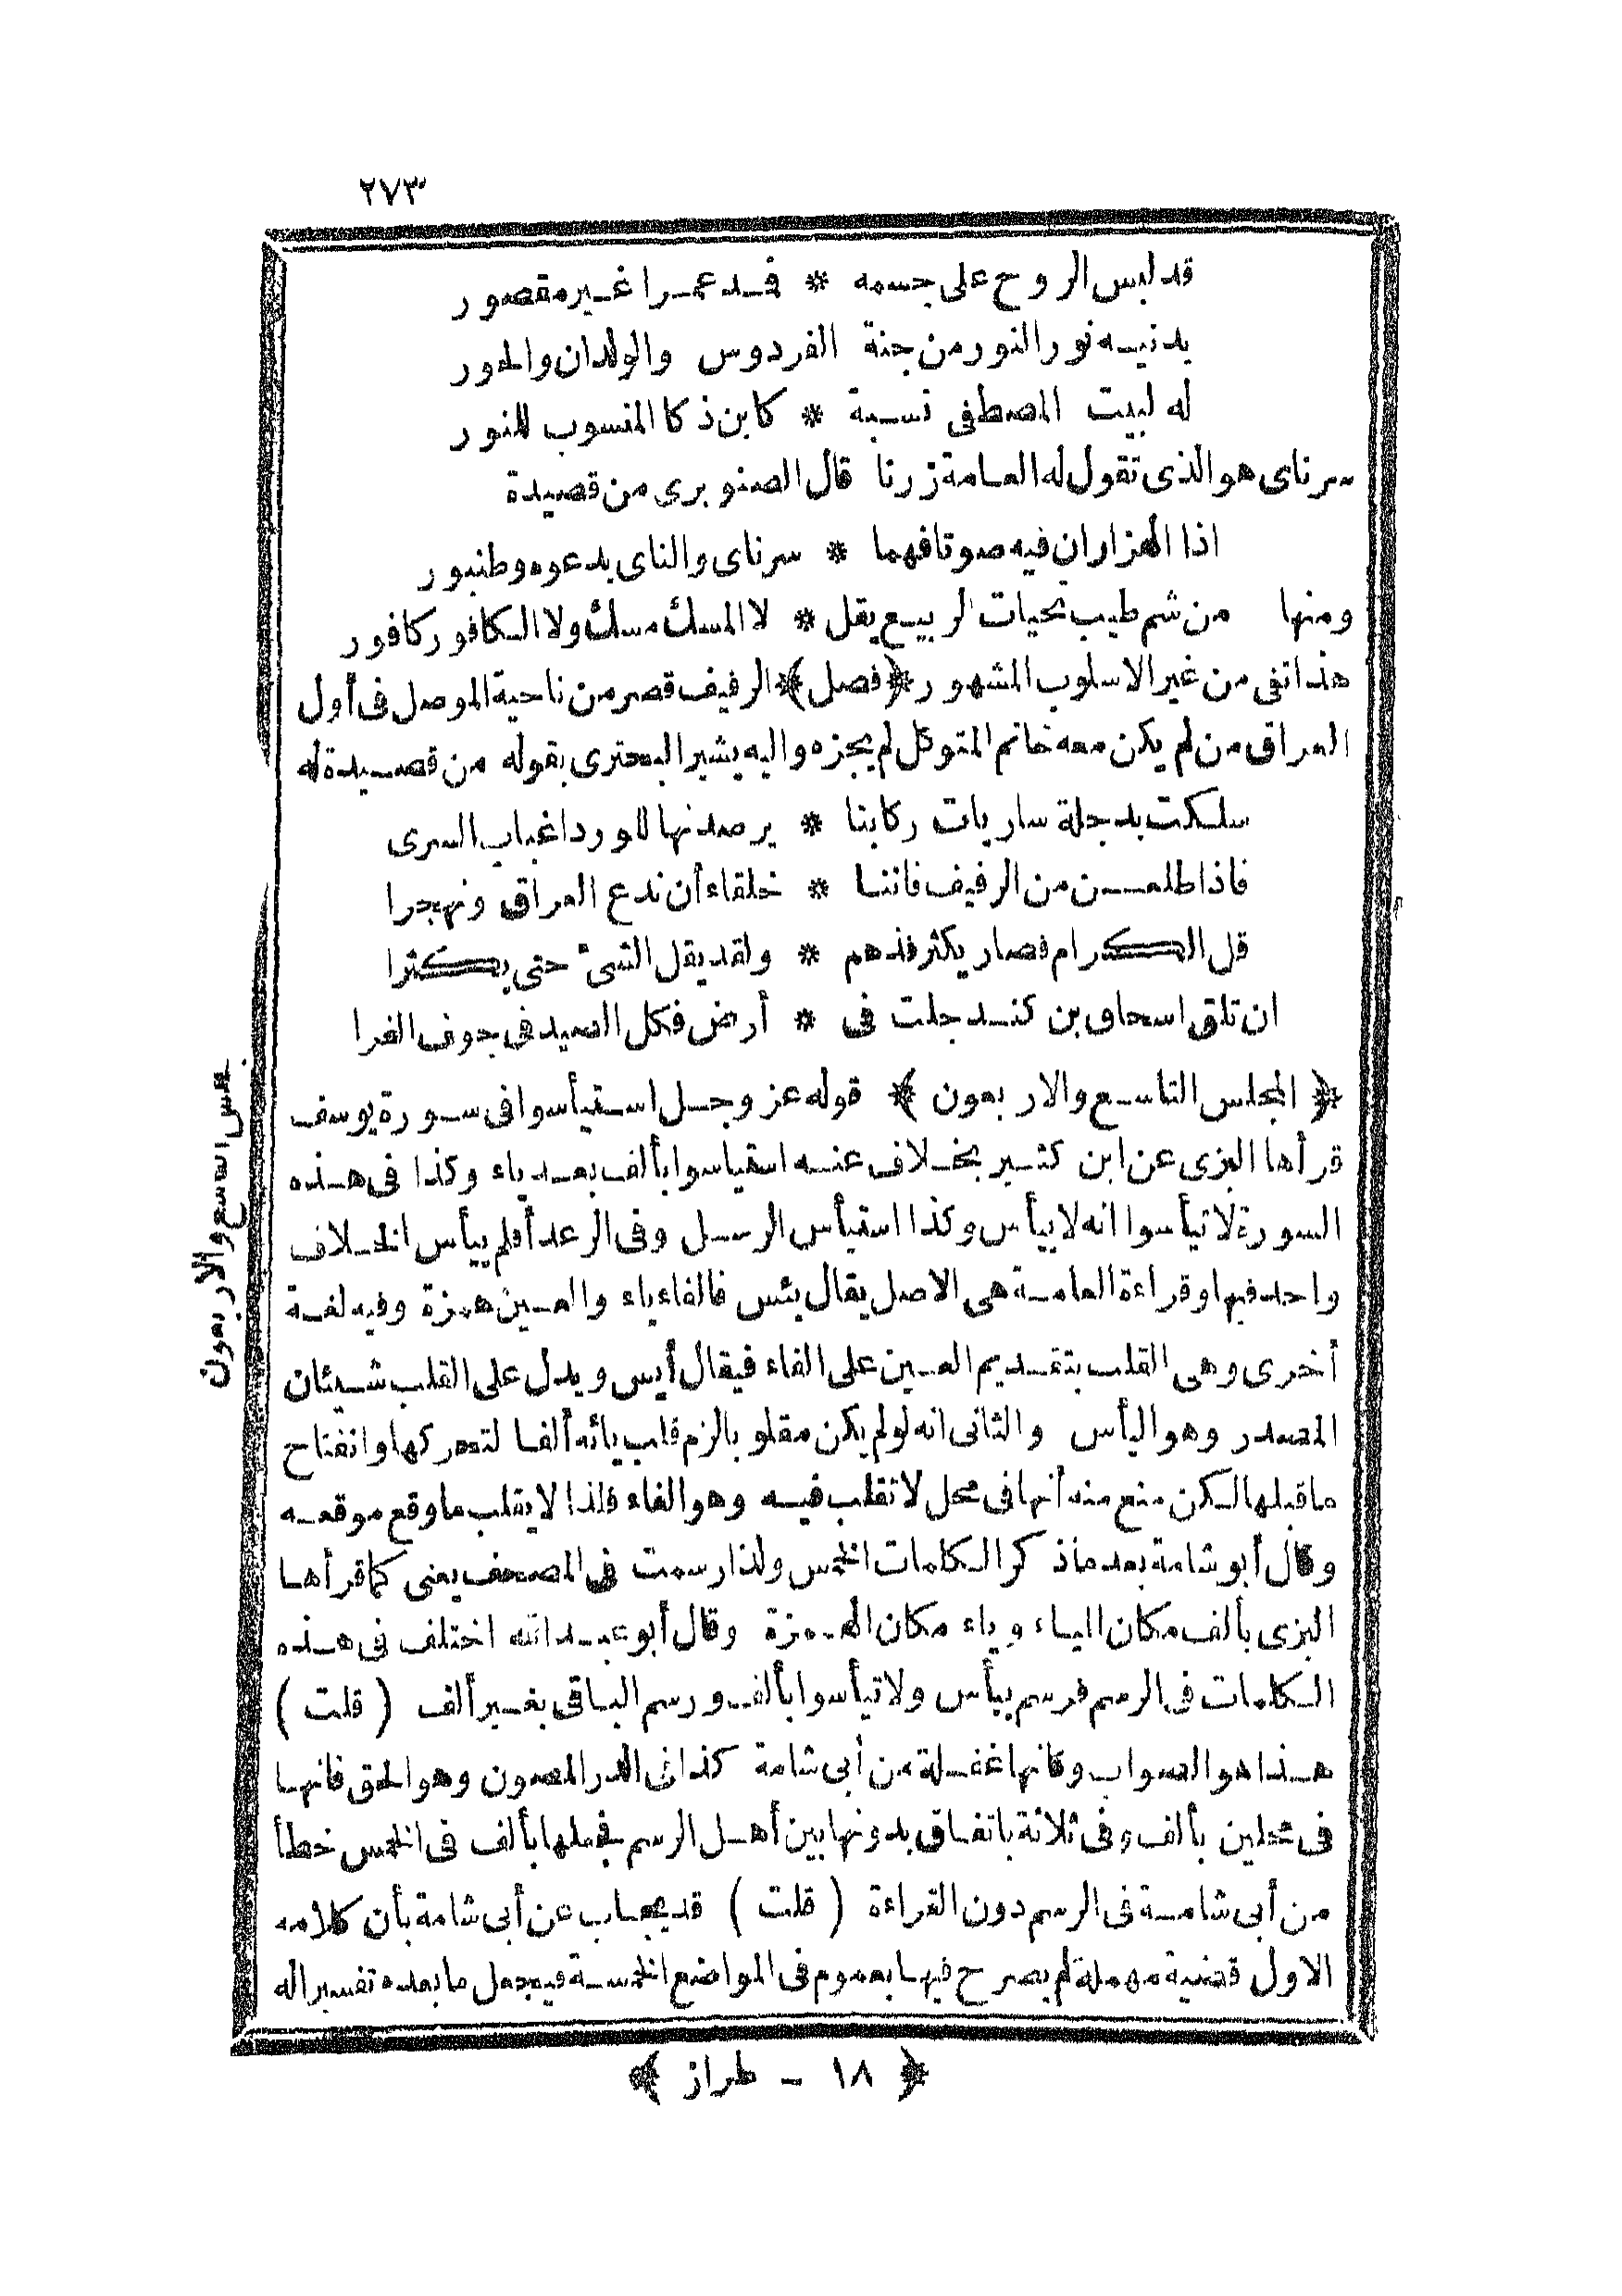 ٢٧٣
قد لبس الروح على جسمه * فمد عمرا غير مقصور
يدنيه نور النور من جنة الفردوس والولدان والحور
له لبيت المصطفى نسبة * كابن ذكا المنسوب للنور
سرناى هو الذى تقول له العامة زرنا قال الصنوبرى من قصيدة
اذا الهزاران فيه صوتا فهما * سرناى والناى يدعوه وطنبور
ومنها من شم طيب تحيات الربيع يقل * لا المسك مسك ولا الكافور كافور
هذا تفى من غير الاسلوب المشهور ﴿فصل﴾ الرفيف قصر من ناحية الموصل فى أول
العراق من لم يكن معه خاتم المتوكل لم يجزه واليه يشير البحترى بقوله من قصيدة له
سلكت بدجلة ساريات ركابنا * يرصدنها للورد اغباب السرى
فاذا طلعن من الرفيف فاننا * خلقاء أن ندع العراق ونهجرا
قل الكرام فصار يكثر فذهم * ولقد يقل الشئ حتى يكثرا
ان تلق اسحاق بن كنداجلت فى * أرض فكل الصيد فى جوف الفرا
﴿ المجلس التاسع والاربعون ﴾ قوله عز وجل استيأسوا فى سورة يوسف
قرأها البزى عن ابن كثير بخلاف عنه استياسوا بألف بعد ياء وكذا فى هذه
السورة لا تيأسوا انه لا ييأس وكذا استيأس الرسل وفى الرعد أفلم ييأس الخلاف
واحد فيها وقراءة العامة هى الاصل يقال يئس فالفاء ياء والعين همزة وفيه لغة
أخرى وهى القلب بتقديم العين على الفاء فيقال أيس ويدل على القلب شيئان
المصدر وهو اليأس والثانى انه لو لم يكن مقلوبا لزم قلب يائه ألفا لتحركها وانفتاح
ما قبلها لكن منع منه أنها فى محل لا تقلب فيه وهو الفاء فلذا لا يقلب ما وقع موقعه
وقال أبو شامة بعد ما ذكر الكلمات الخمس ولذا رسمت فى المصحف يعنى كما قرأها
البزى بألف مكان الياء وياء مكان الهمزة وقال أبو عبد الله اختلف فى هذه
الكلمات فى الرسم فرسم ييأس ولا تيأسوا بألف ورسم الباقى بغير ألف ( قلت )
هذا هو الصواب وكانها غفلة من أبى شامة كذا فى الدر المصون وهو الحق فانها
فى محلين بألف وفى ثلاثة باتفاق بدونها بين أهل الرسم فجعلها بألف فى الخمس خطأ
من أبى شامة فى الرسم دون القراءة ( قلت ) قد يجاب عن أبى شامة بأن كلامه
الاول قضية مهملة لم يصرح فيها بعموم فى المواضع الخمسة فيجعل ما بعده تفسيرا له
﴿ ١٨ - طراز ﴾
والاربعون